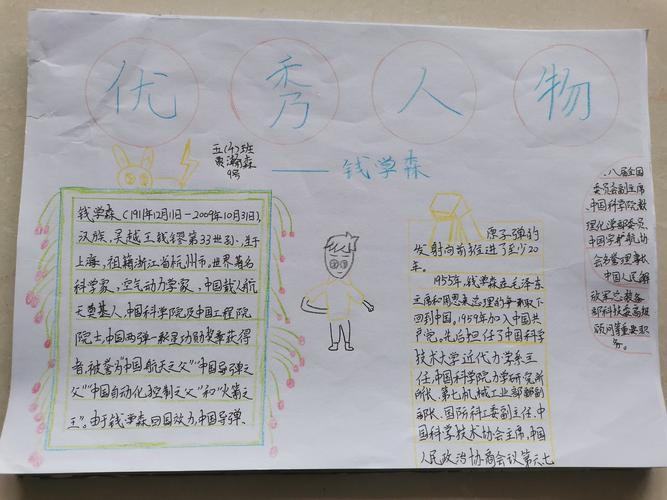 优秀人物
五(4)班
9号
——钱学森
钱学森(1911年12月11日-2009年10月31日),
汉族,吴越王钱镠第33世孙,生于
上海,祖籍浙江省杭州市。世界著名
科学家,空气动力学家,中国载人航
天奠基人,中国科学院及中国工程院
院士,中国两弹一星功勋奖章获得
者,被誉为“中国航天之父”“中国导弹之
父”“中国自动化控制之父”和“火箭之
王”。由于钱学森回国效力,中国导弹、
原子弹的
发射向前推进了至少20
年。
1955年,钱学森在毛泽东
主席和周恩来总理的争取下
回到中国。1959年加入中国共
产党。先后担任了中国科学
技术大学近代力学系主
任,中国科学院力学研究所
所长、第七机械工业部副部
部长、国防科工委副主任、中
国科学技术协会主席、中国
人民政治协商会议第六七
、八届全国
委员会副主席
中国科学院数
理化学部委员、
中国宇航协
会名誉理事长
中国人民解
放军总装备
部科技委高级
顾问等重要职
务。